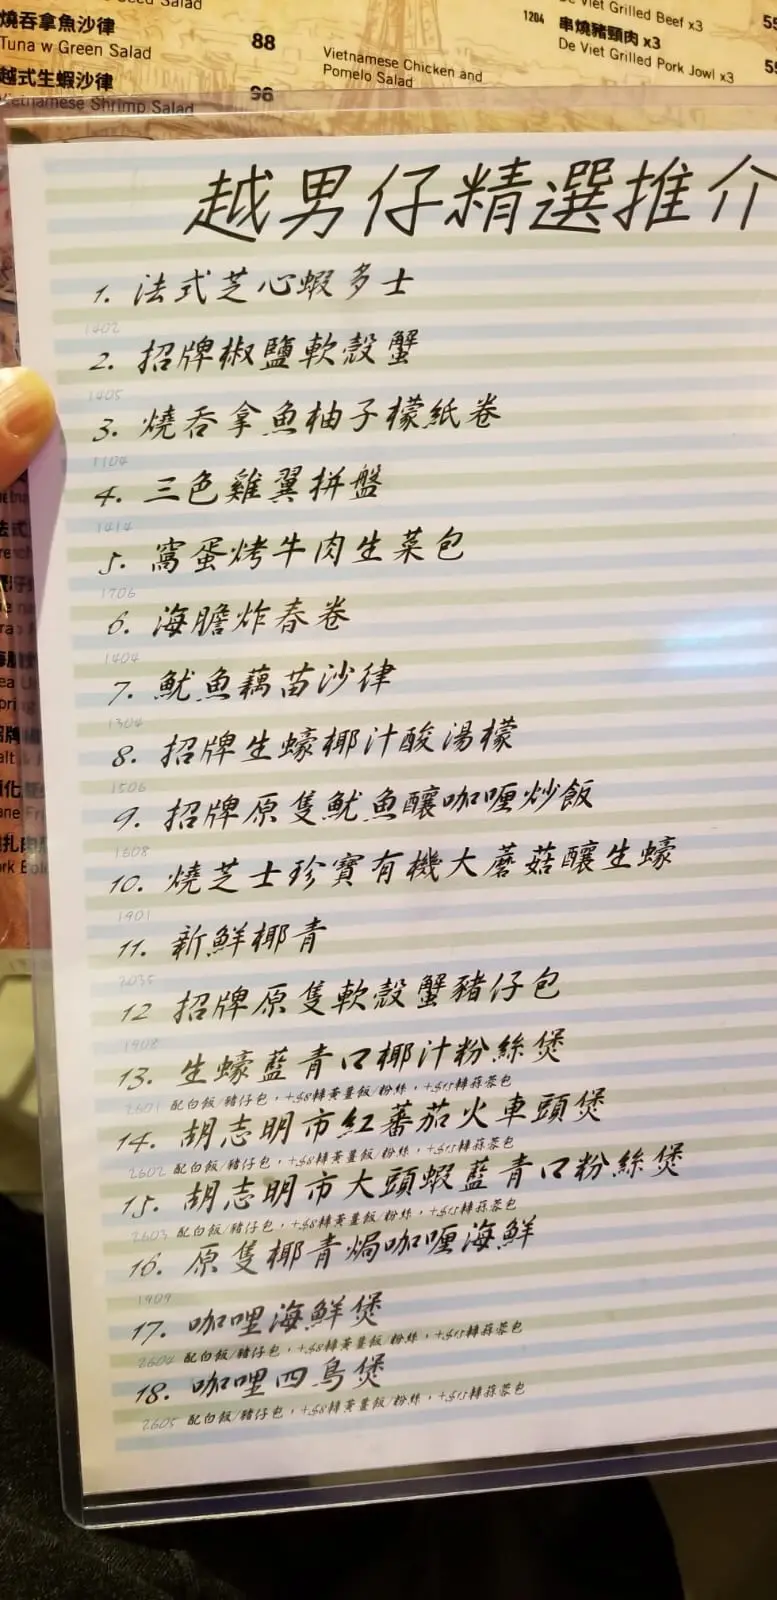 Seed Salad
燒吞拿魚沙律
Tuna w Green Salad
88
越式生蝦沙律
Vietnamese Shrimp Salad
98
Vietnamese Chicken and
Pomelo Salad
De Viet Grilled Beef x3
1204 串燒豬頸肉 x3
De Viet Grilled Pork Jowl x3
越男仔精選推介
1. 法式芝心蝦多士
1402
2. 招牌椒鹽軟殼蟹
1405
3. 燒吞拿魚柚子檬紙卷
1104
4. 三色雞翼拼盤
1414
5. 窩蛋烤牛肉生菜包
1706
6. 海膽炸春卷
1404
7. 魷魚藕苗沙律
1304
8. 招牌生蠔椰汁酸湯檬
1506
9. 招牌原隻魷魚釀咖喱炒飯
1608
10. 燒芝士珍寶有機大蘑菇釀生蠔
1901
11. 新鮮椰青
2035
12 招牌原隻軟殼蟹豬仔包
1908
13. 生蠔藍青口椰汁粉絲煲
2601 配白飯/豬仔包，+$8轉黃薑飯/粉絲，+$15轉蒜蓉包
14. 胡志明市紅蕃茄火車頭煲
2602 配白飯/豬仔包，+$8轉黃薑飯/粉絲，+$15轉蒜蓉包
15. 胡志明市大頭蝦藍青口粉絲煲
2603 配白飯/豬仔包，+$8轉黃薑飯/粉絲，+$15轉蒜蓉包
16. 原隻椰青焗咖喱海鮮
1909
17. 咖哩海鮮煲
2604 配白飯/豬仔包，+$8轉黃薑飯/粉絲，+$15轉蒜蓉包
18. 咖哩四鳥煲
2605 配白飯/豬仔包，+$8轉黃薑飯/粉絲，+$15轉蒜蓉包